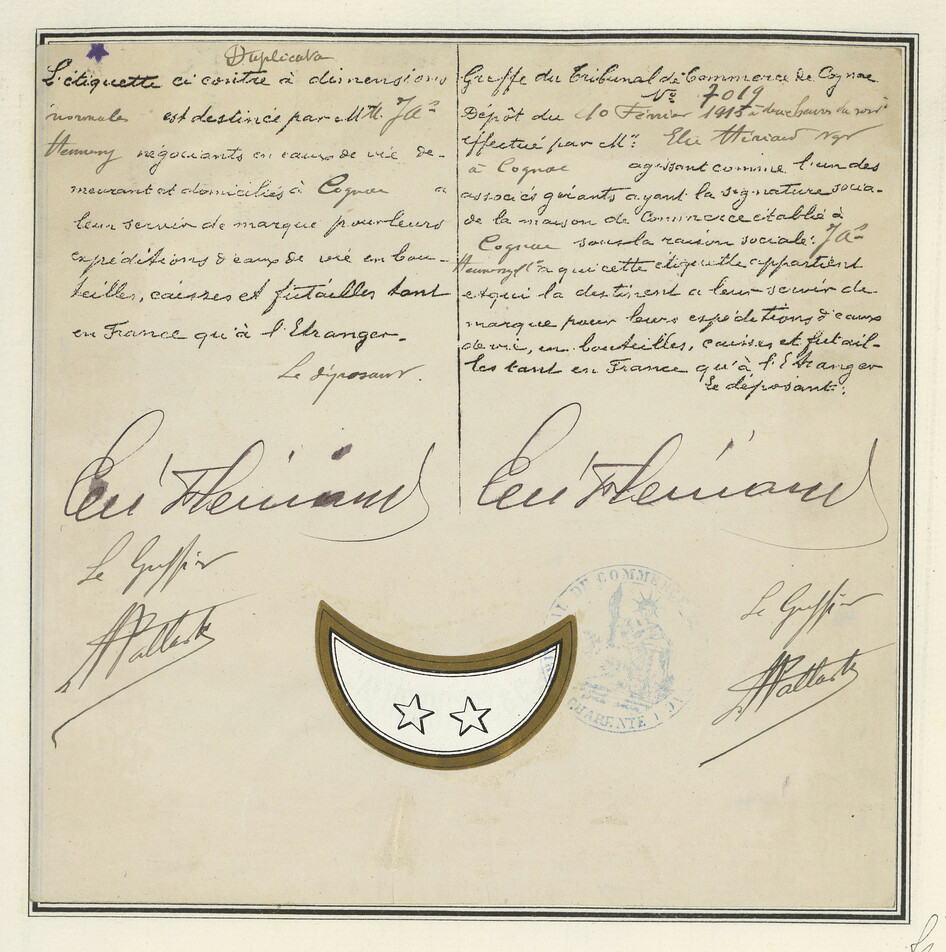 Duplicata
L'étiquette ci contre à dimensions
normales est destinée par MM. Jas
Hennessy négociants en eaux de vie de-
meurant et domiciliés à Cognac a
leur servir de marque pour leurs
expéditions d'eaux de vie en bou-
teilles, caisses et futailles tant
en France qu'à l'Etranger.
Le déposant.
Greffe du Tribunal de Commerce de Cognac
No 7019
Dépôt du 10 Février 1915 à deux heures du soir
effectué par Mr: Elie Hériard Ngt
à Cognac agissant comme l'un des
associés gérants ayant la signature socia-
de la maison de Commerce établie à
Cognac sous la raison sociale: Jas
Hennessy & Co a qui cette étiquette appartient
et qui la destinent a leur servir de
marque pour leurs expéditions d'eaux
de vie, en bouteilles, caisses et futail-
les tant en France qu'à l'Etranger
Le déposant:
Le Greffier
Le Greffier
AL DE COMMERCE
CHARENTE